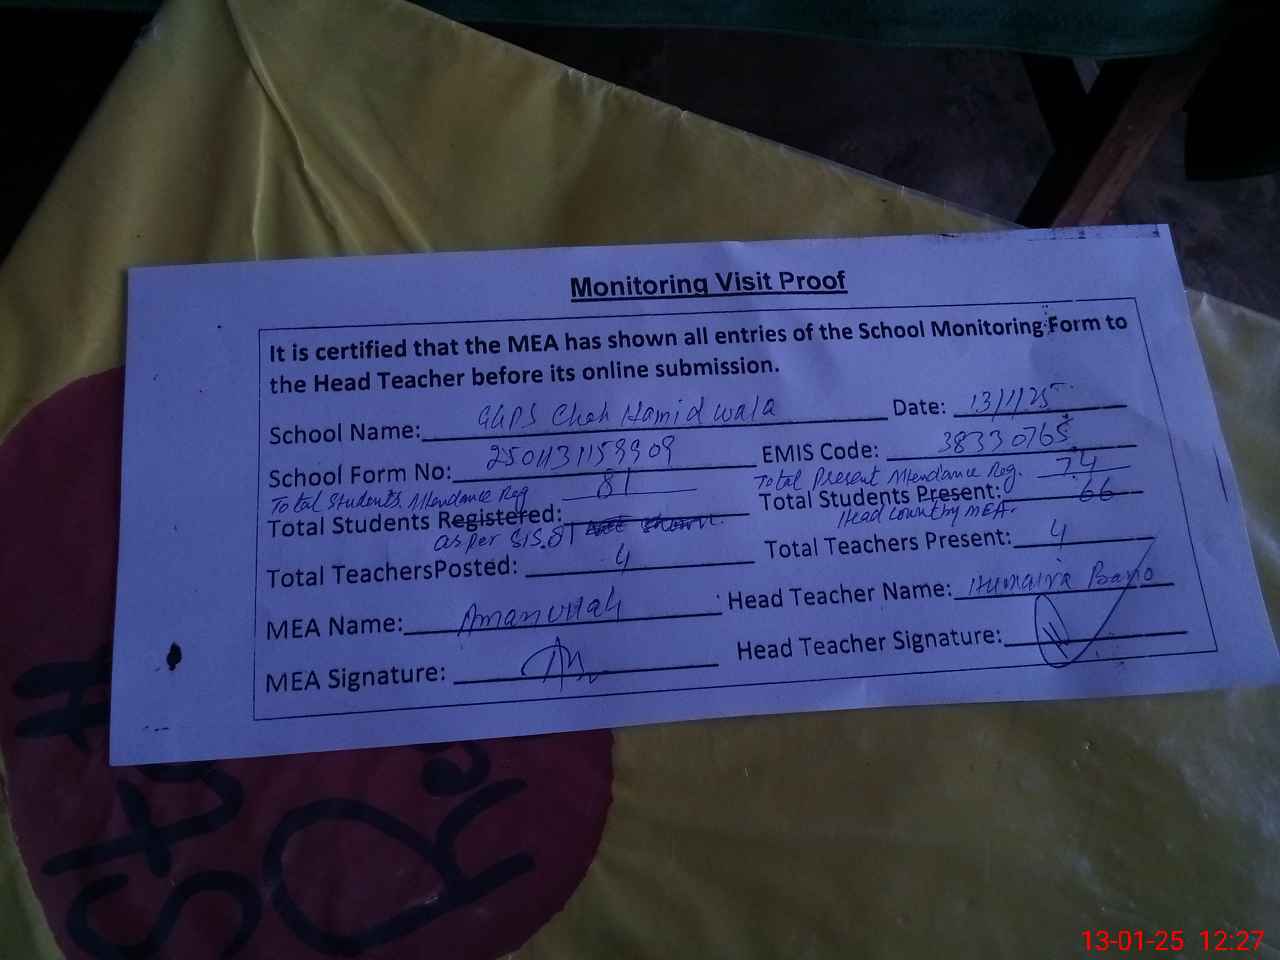 Monitoring Visit Proof
It is certified that the MEA has shown all entries of the School Monitoring Form to
the Head Teacher before its online submission.
School Name: GGPS Chah Hamid wala Date: 13/1/25
School Form No: EMIS Code: 38330765
Total Students Attendance Reg 81 Total Present Attendance Reg. 74
Total Students Registered: Total Students Present: 66
as per SIS. 81 Head count by MEA.
Total TeachersPosted: 4 Total Teachers Present: 4
MEA Name: Amanullah Head Teacher Name: Humaira Bano
MEA Signature: Head Teacher Signature:
13-01-25 12:27